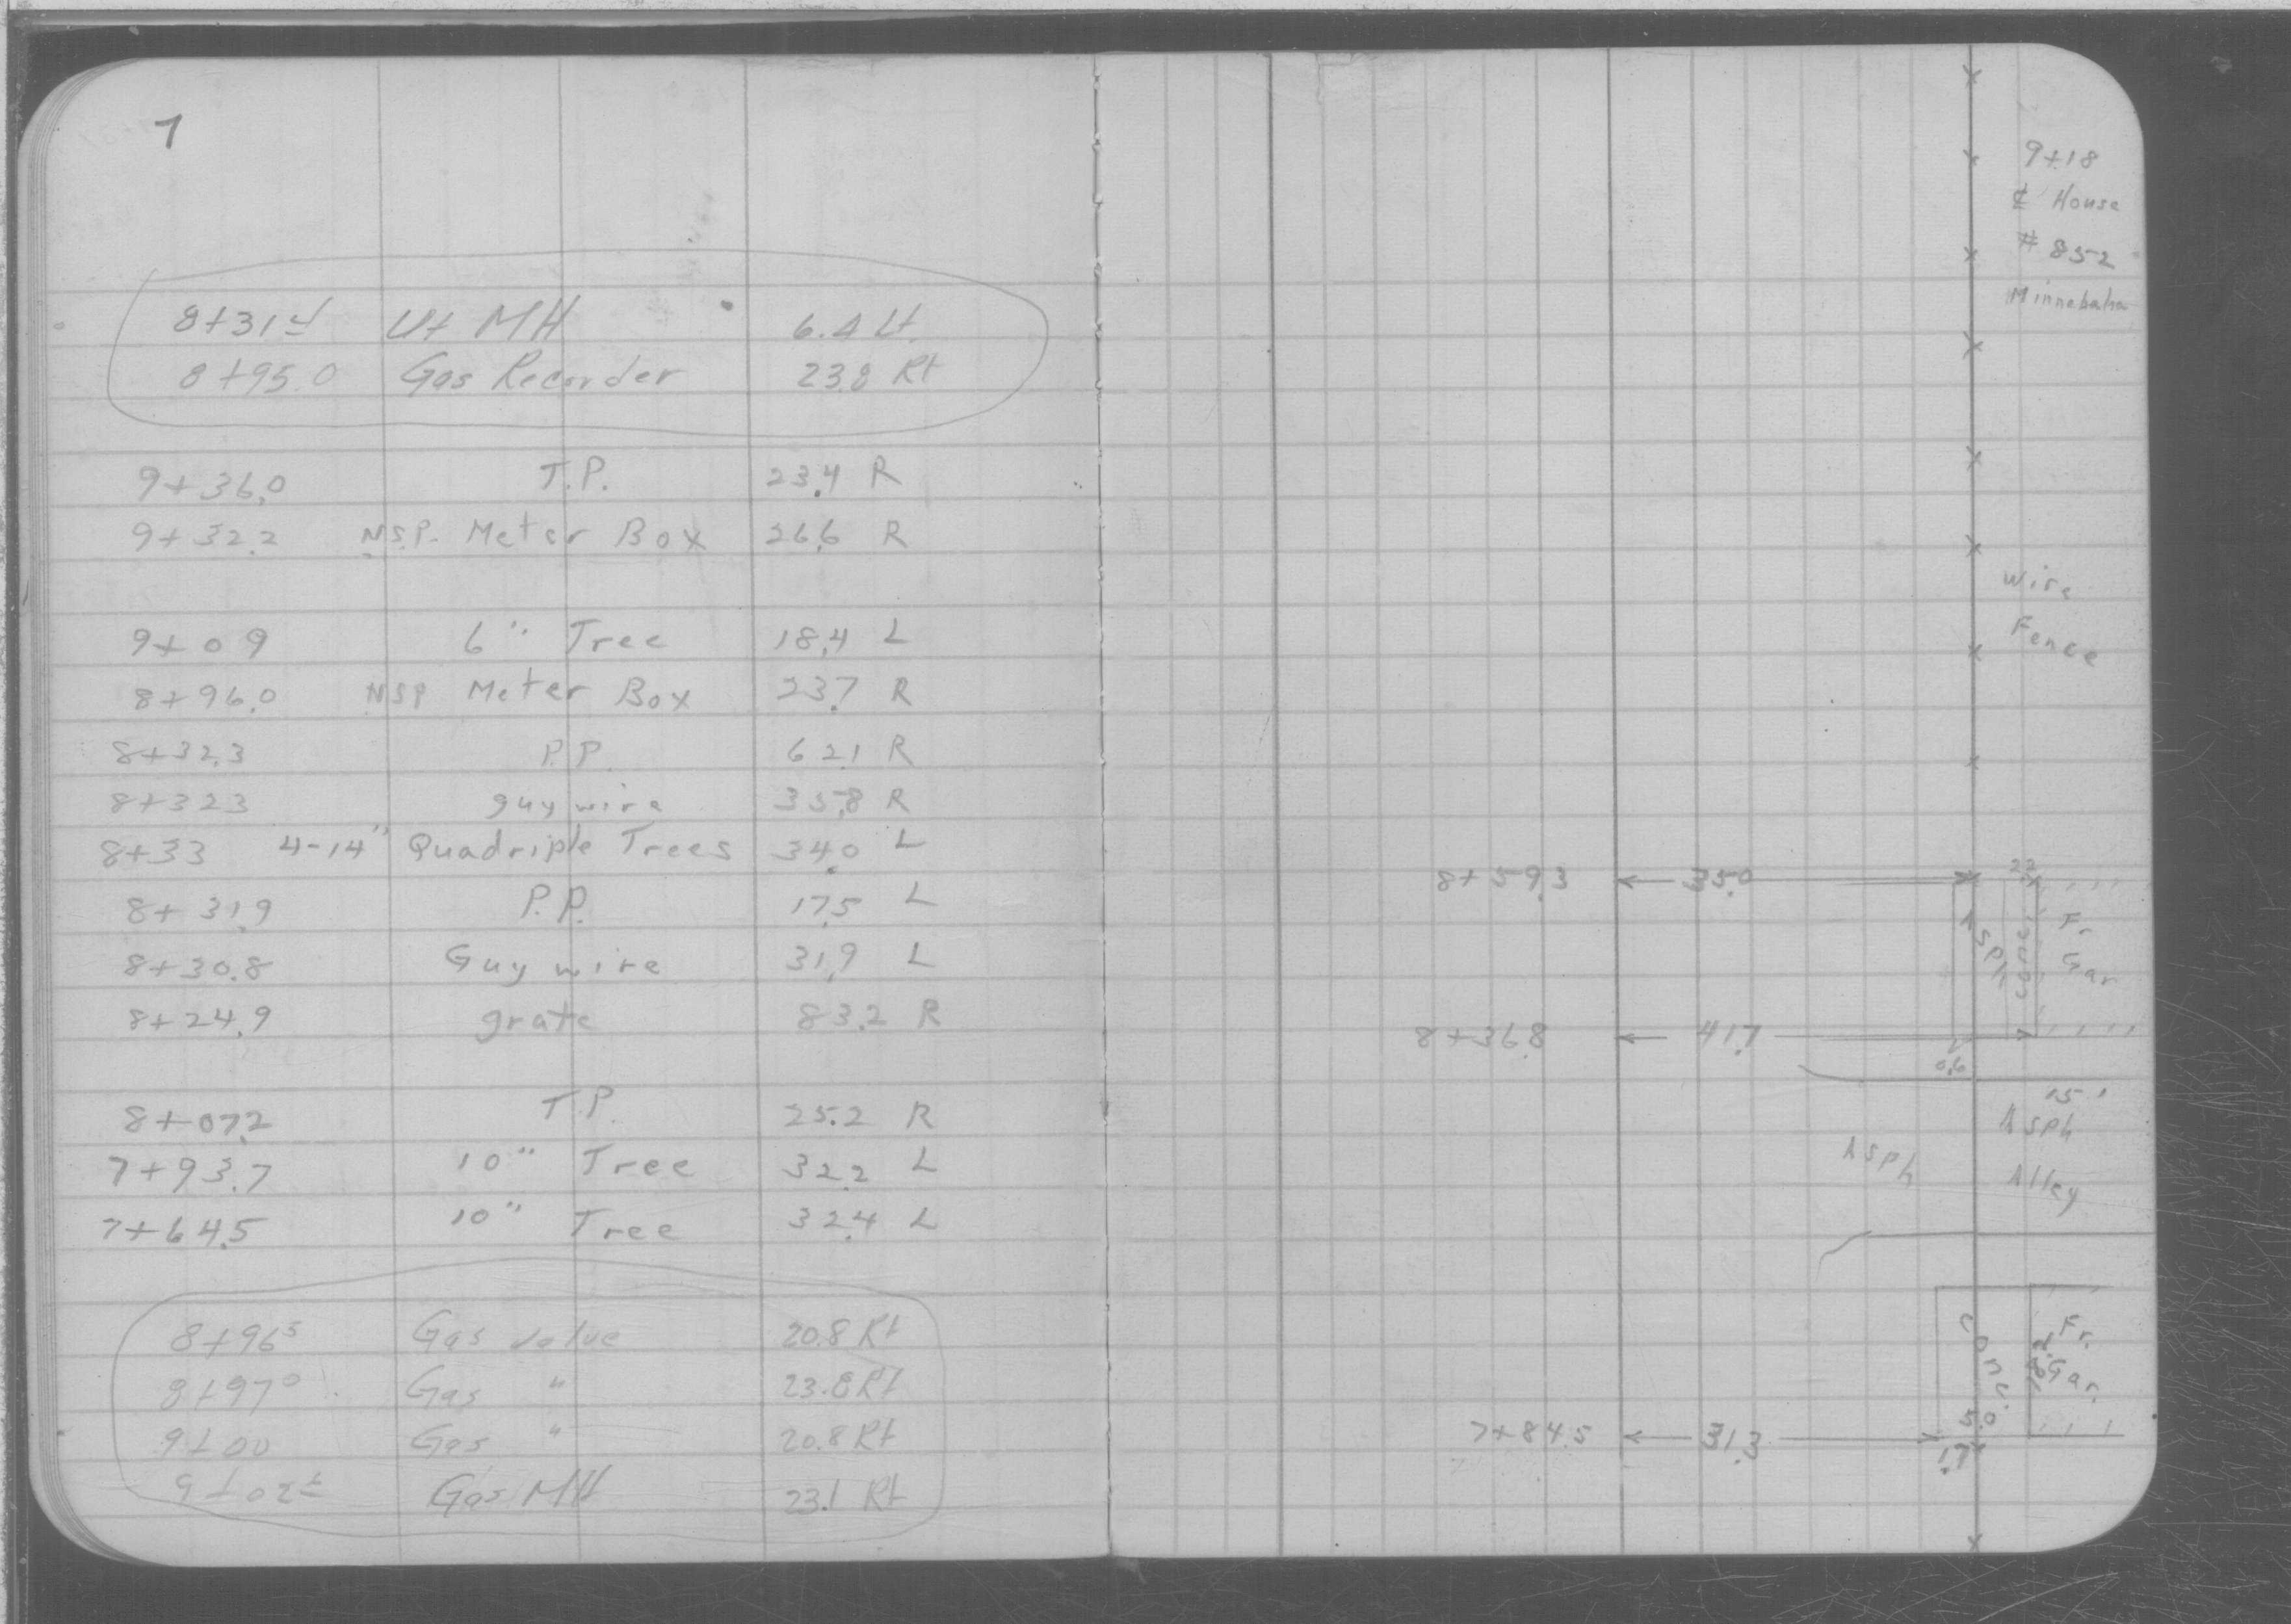 7
8+31 Ut MH 6.4 Lt.
8+95.0 Gas Recorder 23.8 Rt
9+36.0 T.P. 23.4 R
9+32.2 N.S.P. Meter Box 26.6 R
9+09 6" Tree 18.4 L
8+96.0 NSP Meter Box 23.7 R
8+32.3 P.P. 62.1 R
8+32.3 guy wire 35.8 R
8+33 4-14" Quadriple Trees 34.0 L
8+31.9 P.P. 17.5 L
8+30.8 Guy wire 31.9 L
8+24.9 grate 83.2 R
8+07.2 T.P. 25.2 R
7+93.7 10" Tree 32.2 L
7+64.5 10" Tree 32.4 L
8+96⁵ Gas valve 20.8 Rt
8+97⁰ Gas " 23.8 Rt
9+00 Gas " 20.8 Rt
9+02 Gas MH 23.1 Rt
9+18
℄ House
# 852
Minnehaha
Wire
Fence
8+59.3 35.0 2.2
Asph
conc.
Fr.
Gar
8+36.8 41.7
0.6
15'
Asph
Alley
Asph
conc.
Fr.
Gar.
18.2
5.0
7+84.5 31.3
1.7